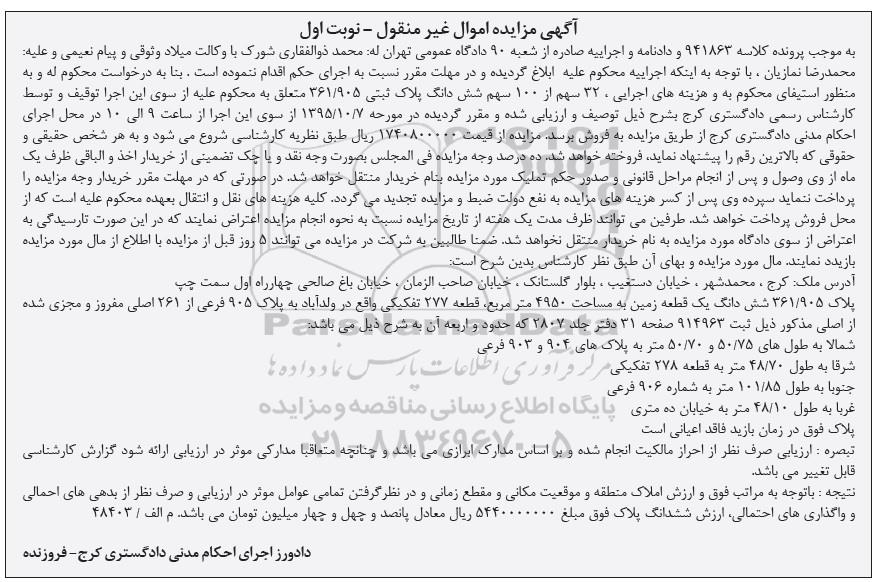 آگهی مزایده اموال غیر منقول - نوبت اول
به موجب پرونده کلاسه ۹۴۱۸۶۳ و دادنامه و اجراییه صادره از شعبه ۹۰ دادگاه عمومی تهران له: محمد ذوالفقاری شورک با وکالت میلاد وثوقی و پیام نعیمی و علیه:
محمدرضا نمازیان ، با توجه به اینکه اجراییه محکوم علیه ابلاغ گردیده و در مهلت مقرر نسبت به اجرای حکم اقدام ننموده است . بنا به درخواست محکوم له و به
منظور استیفای محکوم به و هزینه های اجرایی ، ۳۲ سهم از ۱۰۰ سهم شش دانگ پلاک ثبتی ۳۶۱/۹۰۵ متعلق به محکوم علیه از سوی این اجرا توقیف و توسط
کارشناس رسمی دادگستری کرج بشرح ذیل توصیف و ارزیابی شده و مقرر گردیده در مورحه ۱۳۹۵/۱۰/۷ از سوی این اجرا از ساعت ۹ الی ۱۰ در محل اجرای
احکام مدنی دادگستری کرج از طریق مزایده به فروش برسد. مزایده از قیمت ۱۷۴۰۸۰۰۰۰۰ ریال طبق نظریه کارشناسی شروع می شود و به هر شخص حقیقی و
حقوقی که بالاترین رقم را پیشنهاد نماید، فروخته خواهد شد. ده درصد وجه مزایده فی المجلس بصورت وجه نقد و یا چک تضمینی از خریدار اخذ و الباقی ظرف یک
ماه از وی وصول و پس از انجام مراحل قانونی و صدور حکم تملیک مورد مزایده بنام خریدار منتقل خواهد شد. در صورتی که در مهلت مقرر خریدار وجه مزایده را
پرداخت ننماید سپرده وی پس از کسر هزینه های مزایده به نفع دولت ضبط و مزایده تجدید می گردد. کلیه هزینه های نقل و انتقال بعهده محکوم علیه است که از
محل فروش پرداخت خواهد شد. طرفین می توانند ظرف مدت یک هفته از تاریخ مزایده نسبت به نحوه انجام مزایده اعتراض نمایند که در این صورت تارسیدگی به
اعتراض از سوی دادگاه مورد مزایده به نام خریدار منتقل نخواهد شد. ضمنا طالبین به شرکت در مزایده می توانند ۵ روز قبل از مزایده با اطلاع از مال مورد مزایده
بازدید نمایند. مال مورد مزایده و بهای آن طبق نظر کارشناس بدین شرح است:
آدرس ملک: کرج ، محمدشهر ، خیابان دستغیب ، بلوار گلستانک ، خیابان صاحب الزمان ، خیابان باغ صالحی چهارراه اول سمت چپ
پلاک ۳۶۱/۹۰۵ شش دانگ یک قطعه زمین به مساحت ۴۹۵۰ متر مربع، قطعه ۲۷۷ تفکیکی واقع در ولدآباد به پلاک ۹۰۵ فرعی از ۲۶۱ اصلی مفروز و مجزی شده
از اصلی مذکور ذیل ثبت ۹۱۴۹۶۳ صفحه ۳۱ دفتر جلد ۲۸۰۷ که حدود و اربعه آن به شرح ذیل می باشد:
شمالا به طول های ۵۰/۷۵ و ۵۰/۷۰ متر به پلاک های ۹۰۴ و ۹۰۳ فرعی
شرقا به طول ۴۸/۷۰ متر به قطعه ۲۷۸ تفکیکی
جنوبا به طول ۱۰۱/۸۵ متر به شماره ۹۰۶ فرعی
غربا به طول ۴۸/۱۰ متر به خیابان ده متری
پلاک فوق در زمان بازید فاقد اعیانی است
تبصره : ارزیابی صرف نظر از احراز مالکیت انجام شده و بر اساس مدارک ابرازی می باشد و چنانچه متعاقبا مدارکی موثر در ارزیابی ارائه شود گزارش کارشناسی
قابل تغییر می باشد.
نتیجه : باتوجه به مراتب فوق و ارزش املاک منطقه و موقعیت مکانی و مقطع زمانی و در نظرگرفتن تمامی عوامل موثر در ارزیابی و صرف نظر از بدهی های احمالی
و واگذاری های احتمالی، ارزش ششدانگ پلاک فوق مبلغ ۵۴۴۰۰۰۰۰۰۰ ریال معادل پانصد و چهل و چهار میلیون تومان می باشد. م الف / ۴۸۴۰۳
دادورز اجرای احکام مدنی دادگستری کرج- فروزنده
ParsNamadData
مرکز فرآوری اطلاعات پارس نماد داده ها
پایگاه اطلاع رسانی مناقصه و مزایده
۰۲۱-۸۸۳۴۹۶۷۰-۵